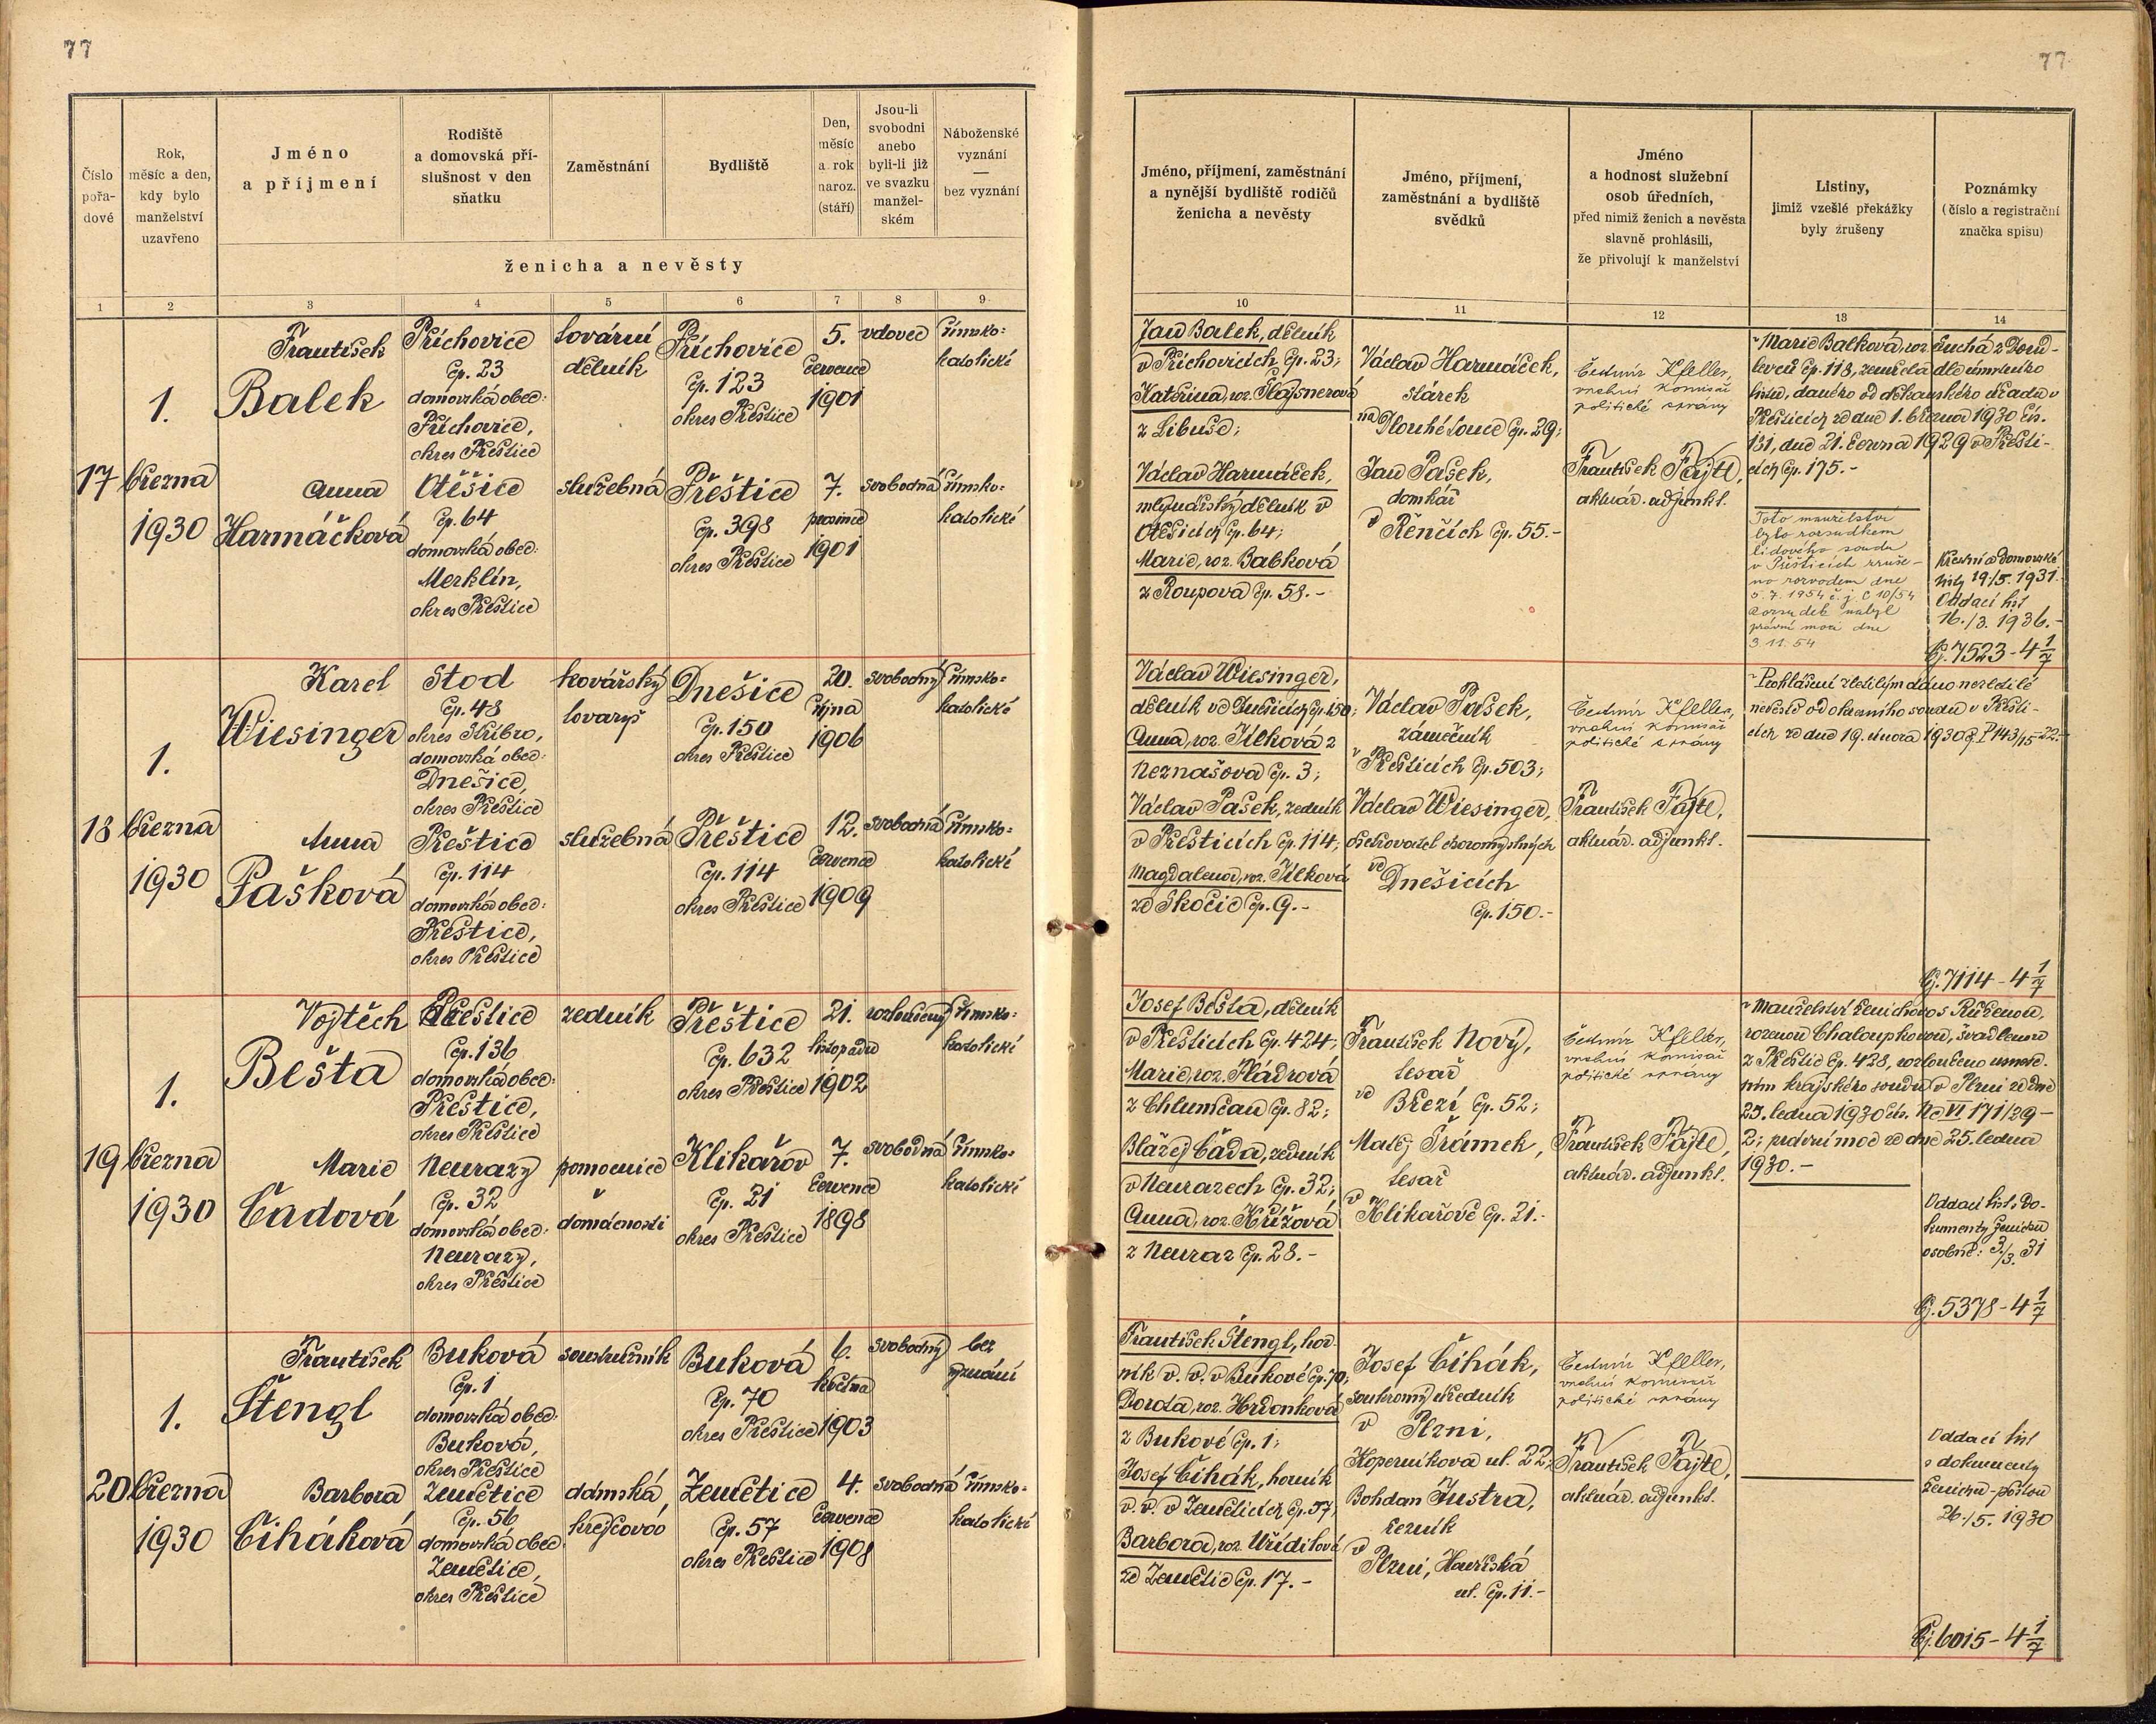 77
77
Číslo pořa- dové
Rok, měsíc a den, kdy bylo manželství uzavřeno
Jméno a příjmení
Rodiště a domovská pří- slušnost v den sňatku
Zaměstnání
Bydliště
Den, měsíc a rok naroz. (stáří)
Jsou-li svobodni anebo byli-li již ve svazku manžel- ském
Náboženské vyznání — bez vyznání
ženicha a nevěsty
1 2 3 4 5 6 7 8 9
Jméno, příjmení, zaměstnání a nynější bydliště rodičů ženicha a nevěsty
Jméno, příjmení, zaměstnání a bydliště svědků
Jméno a hodnost služební osob úředních, před nimiž ženich a nevěsta slavně prohlásili, že přivolují k manželství
Listiny, jimiž vzešlé překážky byly zrušeny
Poznámky (číslo a registrační značka spisu)
10 11 12 13 14
17
1.
března
1930
František
Balek
Příchovice
čp. 23
domovská obec:
Příchovice,
okres Přeštice
tovární
dělník
Příchovice
čp. 123
okres Přeštice
5.
července
1901
vdovec
římsko-
katolické
Anna
Harmáčková
Otěšice
čp. 64
domovská obec:
Merklín,
okres Přeštice
služebná
Přeštice
čp. 398
okres Přeštice
7.
prosince
1901
svobodná
římsko-
katolické
Jan Balek, dělník
v Příchovicích čp. 23;
Kateřina, roz. Šlajsnerová
z Libuše;
Václav Harmáček,
mlynářský dělník v
Otěšicích čp. 64;
Marie, roz. Babková
z Roupova čp. 58.-
Václav Harmáček,
stárek
na Dlouhé Louce čp. 29;
Jan Pašek,
domkář
v Řenčích čp. 55.-
Čestmír Kfeller,
vrchní komisař
politické správy
František Fajtl,
aktuár. adjunkt.
Marie Balková, roz. Suchá z Dolu-
levců čp. 118, zemřela dle úmrtního
listu, daného od děkanského úřadu v
Přešticích ze dne 1. března 1930 čís.
131, dne 21. června 1929 v Přešti-
cích čp. 175.-
Toto manželství
bylo rozsudkem
lidového soudu
v Přešticích zruše-
no rozvodem dne
5. 7. 1954 č. j. C 10/54
Rozsudek nabyl
právní moci dne
3. 11. 54
Křestní a domovské
listy 19/5. 1931.
Oddací list
16./3. 1936.-
Čj. 7523-4 1/7
18
1.
března
1930
Karel
Wiesinger
Stod
čp. 48
okres Stříbro,
domovská obec:
Dnešice,
okres Přeštice
kovářský
tovaryš
Dnešice
čp. 150
okres Přeštice
20.
října
1906
svobodný
římsko-
katolické
Anna
Pašková
Přeštice
čp. 114
domovská obec:
Přeštice,
okres Přeštice
služebná
Přeštice
čp. 114
okres Přeštice
12.
července
1909
svobodná
římsko-
katolické
Václav Wiesinger,
dělník v Dnešicích čp. 150;
Anna, roz. Jílková z
Neznašova čp. 3;
Václav Pašek, zedník
v Přešticích čp. 114;
Magdalena, roz. Jílková
ze Skočic čp. 9.-
Václav Pašek,
zámečník
v Přešticích čp. 503;
Václav Wiesinger,
ošetřovatel choromyslných
v Dnešicích
čp. 150.-
Čestmír Kfeller,
vrchní komisař
politické správy
František Fajtl,
aktuár. adjunkt.
Prohlášení zletilým dáno nezletilé
nevěstě od okresního soudu v Přešti-
cích ze dne 19. února 1930 čj. P 143/15-22.-
Čj. 7114-4 1/7
19
1.
března
1930
Vojtěch
Bešta
Přeštice
čp. 136
domovská obec:
Přeštice,
okres Přeštice
zedník
Přeštice
čp. 632
okres Přeštice
21.
listopadu
1902
rozloučený
římsko-
katolické
Marie
Čadová
Neurazy
čp. 32
domovská obec:
Neurazy,
okres Přeštice
pomocnice
v
domácnosti
Klikařov
čp. 21
okres Přeštice
7.
července
1898
svobodná
římsko-
katolické
Josef Bešta, dělník
v Přešticích čp. 424;
Marie, roz. Fládrová
z Chlumčan čp. 82;
Blažej Čada, zedník
v Neurazech čp. 32;
Anna, roz. Křížová
z Neuraz čp. 28.-
František Nový,
tesař
ve Březí čp. 52;
Matěj Šrámek,
tesař
v Klikařově čp. 21.-
Čestmír Kfeller,
vrchní komisař
politické správy
František Fajtl,
aktuár. adjunkt.
Manželství ženichovo s Růženou,
rozenou Chaloupkovou, švadlenou
z Přeštic čp. 428, rozloučeno usnese-
ním krajského soudu v Plzni ze dne
25. ledna 1930 čís. Nc VI 171/29-
2; právní moc ze dne 25. ledna
1930.-
Oddací list, Do-
kumenty ženicha
osobně: 3./3. 31
Čj. 5378-4 1/7
20
1.
března
1930
František
Štengl
Buková
čp. 1
domovská obec:
Buková,
okres Přeštice
soustružník
Buková
čp. 70
okres Přeštice
6.
května
1903
svobodný
bez
vyznání
Barbora
Čiháková
Zemětice
čp. 56
domovská obec:
Zemětice,
okres Přeštice
dámská
krejčová
Zemětice
čp. 57
okres Přeštice
4.
července
1908
svobodná
římsko-
katolické
František Štengl, hor-
ník v. v. v Bukové čp. 70;
Dorota, roz. Hrdonková
z Bukové čp. 1;
Josef Čihák, horník
v. v. v Zeměticích čp. 57;
Barbora, roz. Uřídilová
ze Zemětic čp. 17.-
Josef Čihák,
soukromý úředník
v Plzni,
Koperníkova ul. 22;
Bohdan Justra,
řezník
v Plzni, Havířská
ul. čp. 11.-
Čestmír Kfeller,
vrchní komisař
politické správy
František Fajtl,
aktuár. adjunkt.
Oddací list
s dokumenty
ženicha-poštou
26./5. 1930
Čj. 6015-4 1/7